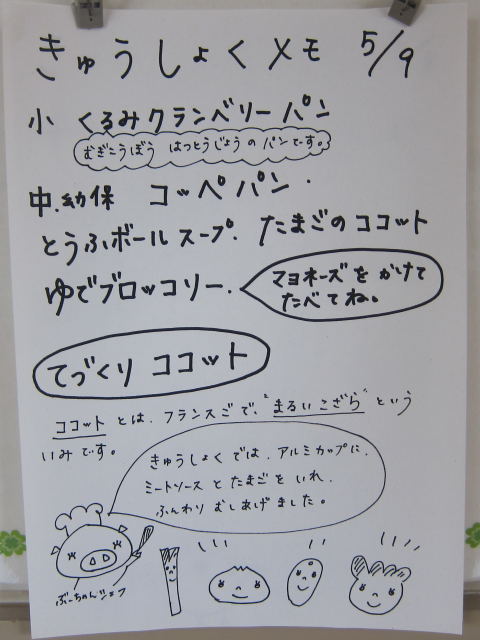 きゅうしょくメモ 5/9
小 くるみクランベリーパン
むぎこうぼう はつとうじょうのパンです。
中.幼保 コッペパン.
とうふボールスープ. たまごのココット
ゆでブロッコリー.
マヨネーズをかけて
たべてね。
てづくり ココット
ココットとは、フランスごで、"まるいこざら"という
いみです。
きゅうしょくでは、アルミカップに、
ミートソースとたまごをいれ、
ふんわりむしあげました。
ぶーちゃんシェフ